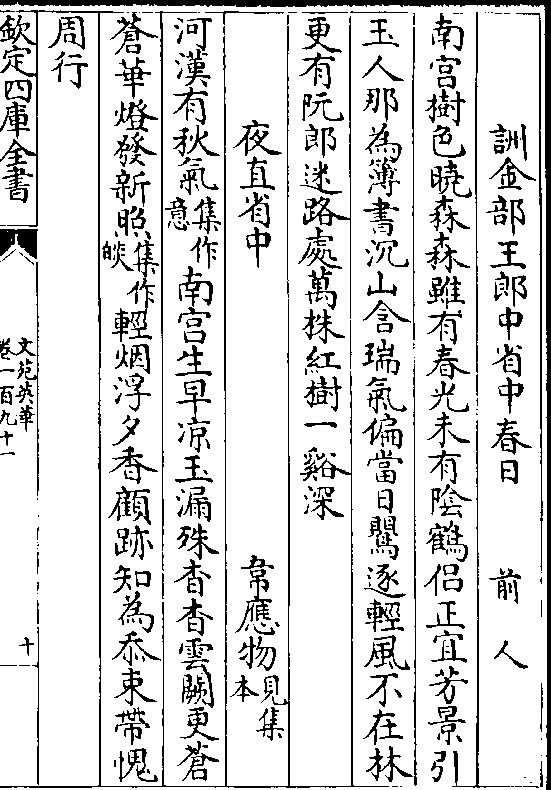 詶金部王郎中省中春日　前人
南宫樹色曉森森雖有春光未有陰鶴侣正宜芳景引
玉人那為簿書沉山含瑞氣偏當日鸎逐輕風不在林
更有阮郎迷路處萬株紅樹一谿深
夜直省中　韋應物見集本
河漢有秋氣集作意南宫生早凉玉漏殊杳杳雲闕更蒼
蒼華燈發新照集作燄輕烟浮夕香顧跡知為忝束帶愧
周行
欽定四庫全書
文苑英華
卷一百九十一
十